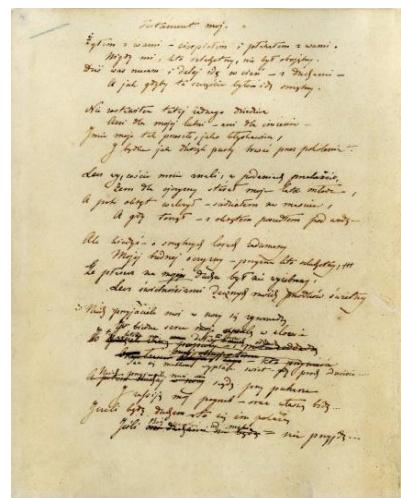 Testament mój.
Żyłem z wami – cierpiałem i płakałem z wami.
Nigdy mi, kto szlachetny, nie był obojętny.
Dziś was rzucam i dalej idę w cień – z duchami –
A jak gdyby tu szczęście było idę smętny.
Nie zostawiłem tutaj żadnego dziedzica
Ani dla mojéj lutni – ani dla imienia –
Imie moje tak przeszło, jako błyskawica,
I będzie jak dźwięk pusty trwać przez pokolenia.
Lecz wy, coście mnie znali, w podaniach przekażcie,
Żem dla ojczyzny sterał moje lata młode –,
A póki okręt walczył – siedziałem na maszcie,
A gdy tonął – z okrętem poszedłem pod wodę –
Ale kiedyś – o smętnych losach zadumany
Mojéj biednéj ojczyzny – przyzna kto szlachetny,
Że płaszcz na moim duchu był nie wyżebrany,
Lecz świetnościami dawnych moich przodków świetny
Niech przyjaciele moi w nocy się zgromadzą
I biedne serce moje spalą w aloesie
siędą przy pucharze
I zapiją mój pogrzeb – oraz własną biedę...
Jeżeli będę duchem to się im pokażę
Jeśli nie przyjdę...